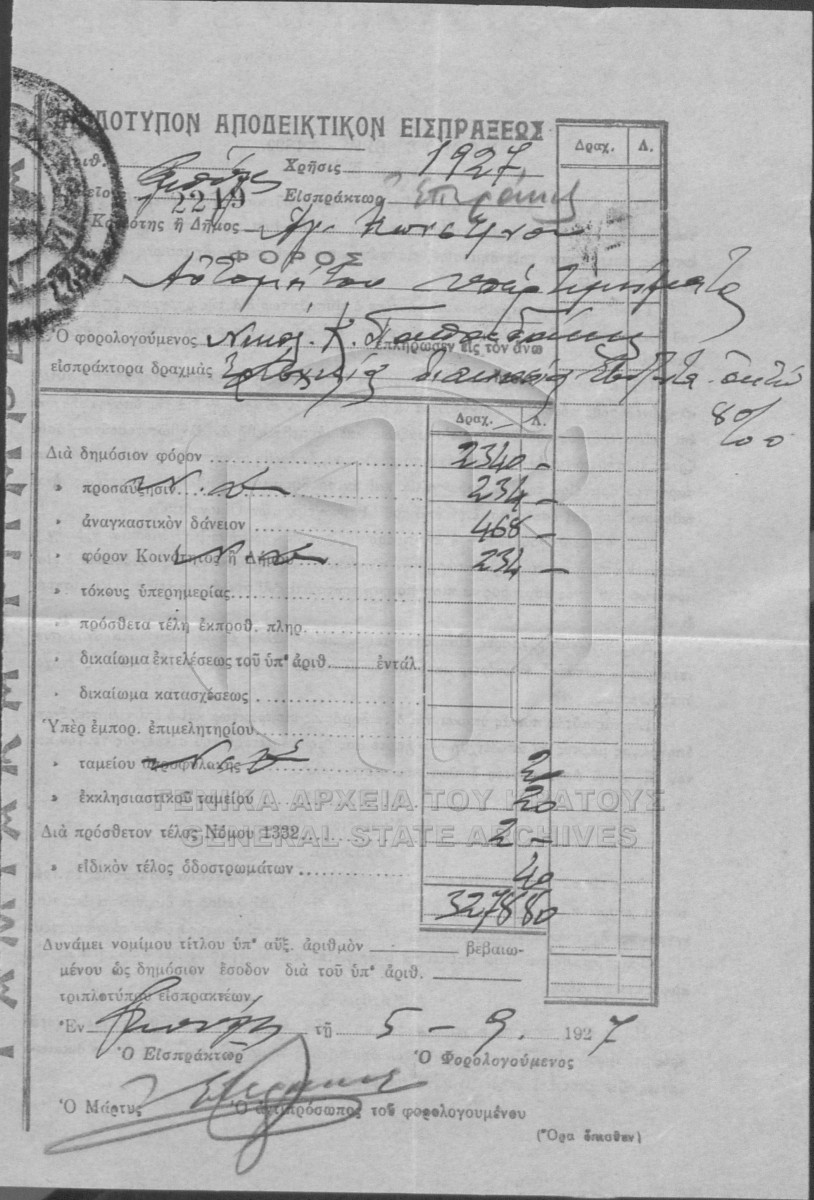 ΑΠΟΔΕΙΚΤΙΚΟΝ ΕΙΣΠΡΑΞΕΩΣ
Δραχ. Λ.
Ἀριθ. Χρῆσις 1927
2219 Εἰσπράκτωρ
Κοινότης ἢ Δῆμος Ἁγ.
ΦΟΡΟΣ
Αὐτομάτου ὑπερτιμήματος
Ὁ φορολογούμενος Νικόλ. Κ. ἐπλήρωσεν εἰς τὸν ἄνω
εἰσπράκτορα δραχμὰς τρισχιλίας διακοσίας ἑβδομήντα ὀκτώ
80/00
Δραχ. Λ.
Διὰ δημόσιον φόρον 2340 –
» προσαύξησιν 234 –
» ἀναγκαστικὸν δάνειον 468 –
» φόρον Κοινότητος ἢ Δήμου 234 –
» τόκους ὑπερημερίας
» πρόσθετα τέλη ἐκπροθ. πληρ.
» δικαίωμα ἐκτελέσεως τοῦ ὑπ' ἀριθ. ἐντάλ.
» δικαίωμα κατασχέσεως
Ὑπὲρ ἐμπορ. ἐπιμελητηρίου
» ταμείου ἀγροφυλακῆς
» ἐκκλησιαστικοῦ ταμείου 20
ΓΕΝΙΚΑ ΑΡΧΕΙΑ ΤΟΥ ΚΡΑΤΟΥΣ
Διὰ πρόσθετον τέλος Νόμου 1332 2 –
GENERAL STATE ARCHIVES
» εἰδικὸν τέλος ὁδοστρωμάτων 40
3278 80
Δυνάμει νομίμου τίτλου ὑπ' αὔξ. ἀριθμὸν βεβαιω-
μένου ὡς δημόσιον ἔσοδον διὰ τοῦ ὑπ' ἀριθ.
τριπλοτύπου εἰσπρακτέων
Ἐν τῇ 5 – 9. 1927
Ὁ Εἰσπράκτωρ Ὁ Φορολογούμενος
Ὁ Μάρτυς Ὁ ἀντιπρόσωπος τοῦ φορολογουμένου
(Ὅρα ὄπισθεν)